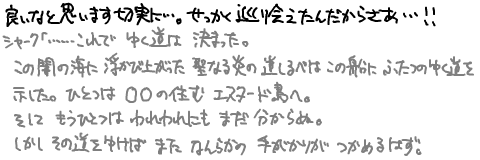 良いなと思います切実に…。せっかく巡り会えたんだからさあ…!!
シャーク「……これで ゆく道は 決まった。
この闇の海に 浮かび上がった 聖なる炎の 道しるべは この船に ふたつのゆく道を
示した。ひとつは 〇〇の住む エスタード島へ。
そして もうひとつは われわれにも まだ 分からぬ。
しかし その道をゆけば また なんらかの 手がかりが つかめるはず。